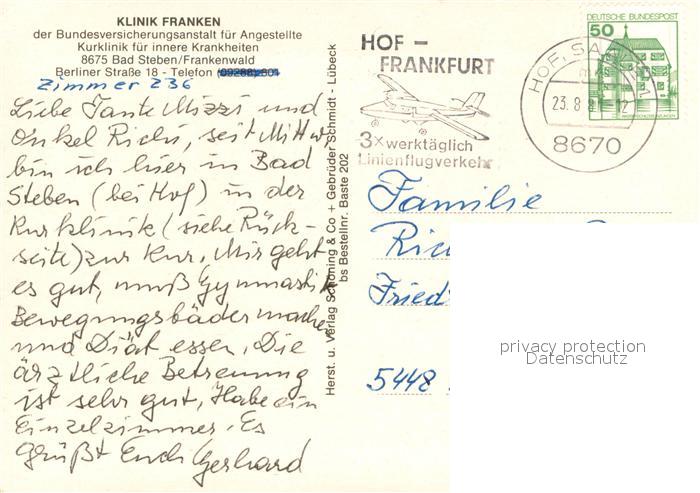 KLINIK FRANKEN
der Bundesversicherungsanstalt für Angestellte
Kurklinik für innere Krankheiten
8675 Bad Steben/Frankenwald
Berliner Straße 18 - Telefon
Zimmer 236
Liebe Tante Mizzi und
Onkel Richi, seit Mittw
bin ich hier in Bad
Steben (bei Hof) in der
Kurklinik (siehe Rück-
seite) zur Kur. Mir geht
es gut, muß Gymnastik
Bewegungsbäder machen
und Diät essen. Die
ärztliche Betreuung
ist sehr gut, Habe ein
Einzelzimmer. Es
grüßt Euch Gerhard
Herst. u. Verlag Schöning & Co + Gebrüder Schmidt - Lübeck
bs Bestellnr. Baste 202
HOF -
FRANKFURT
3x werktäglich
Linienflugverkehr
HOF, SAALE
23.8.8 12
8670
DEUTSCHE BUNDESPOST
50
Familie
Ric
Fried
5448
privacy protection
Datenschutz